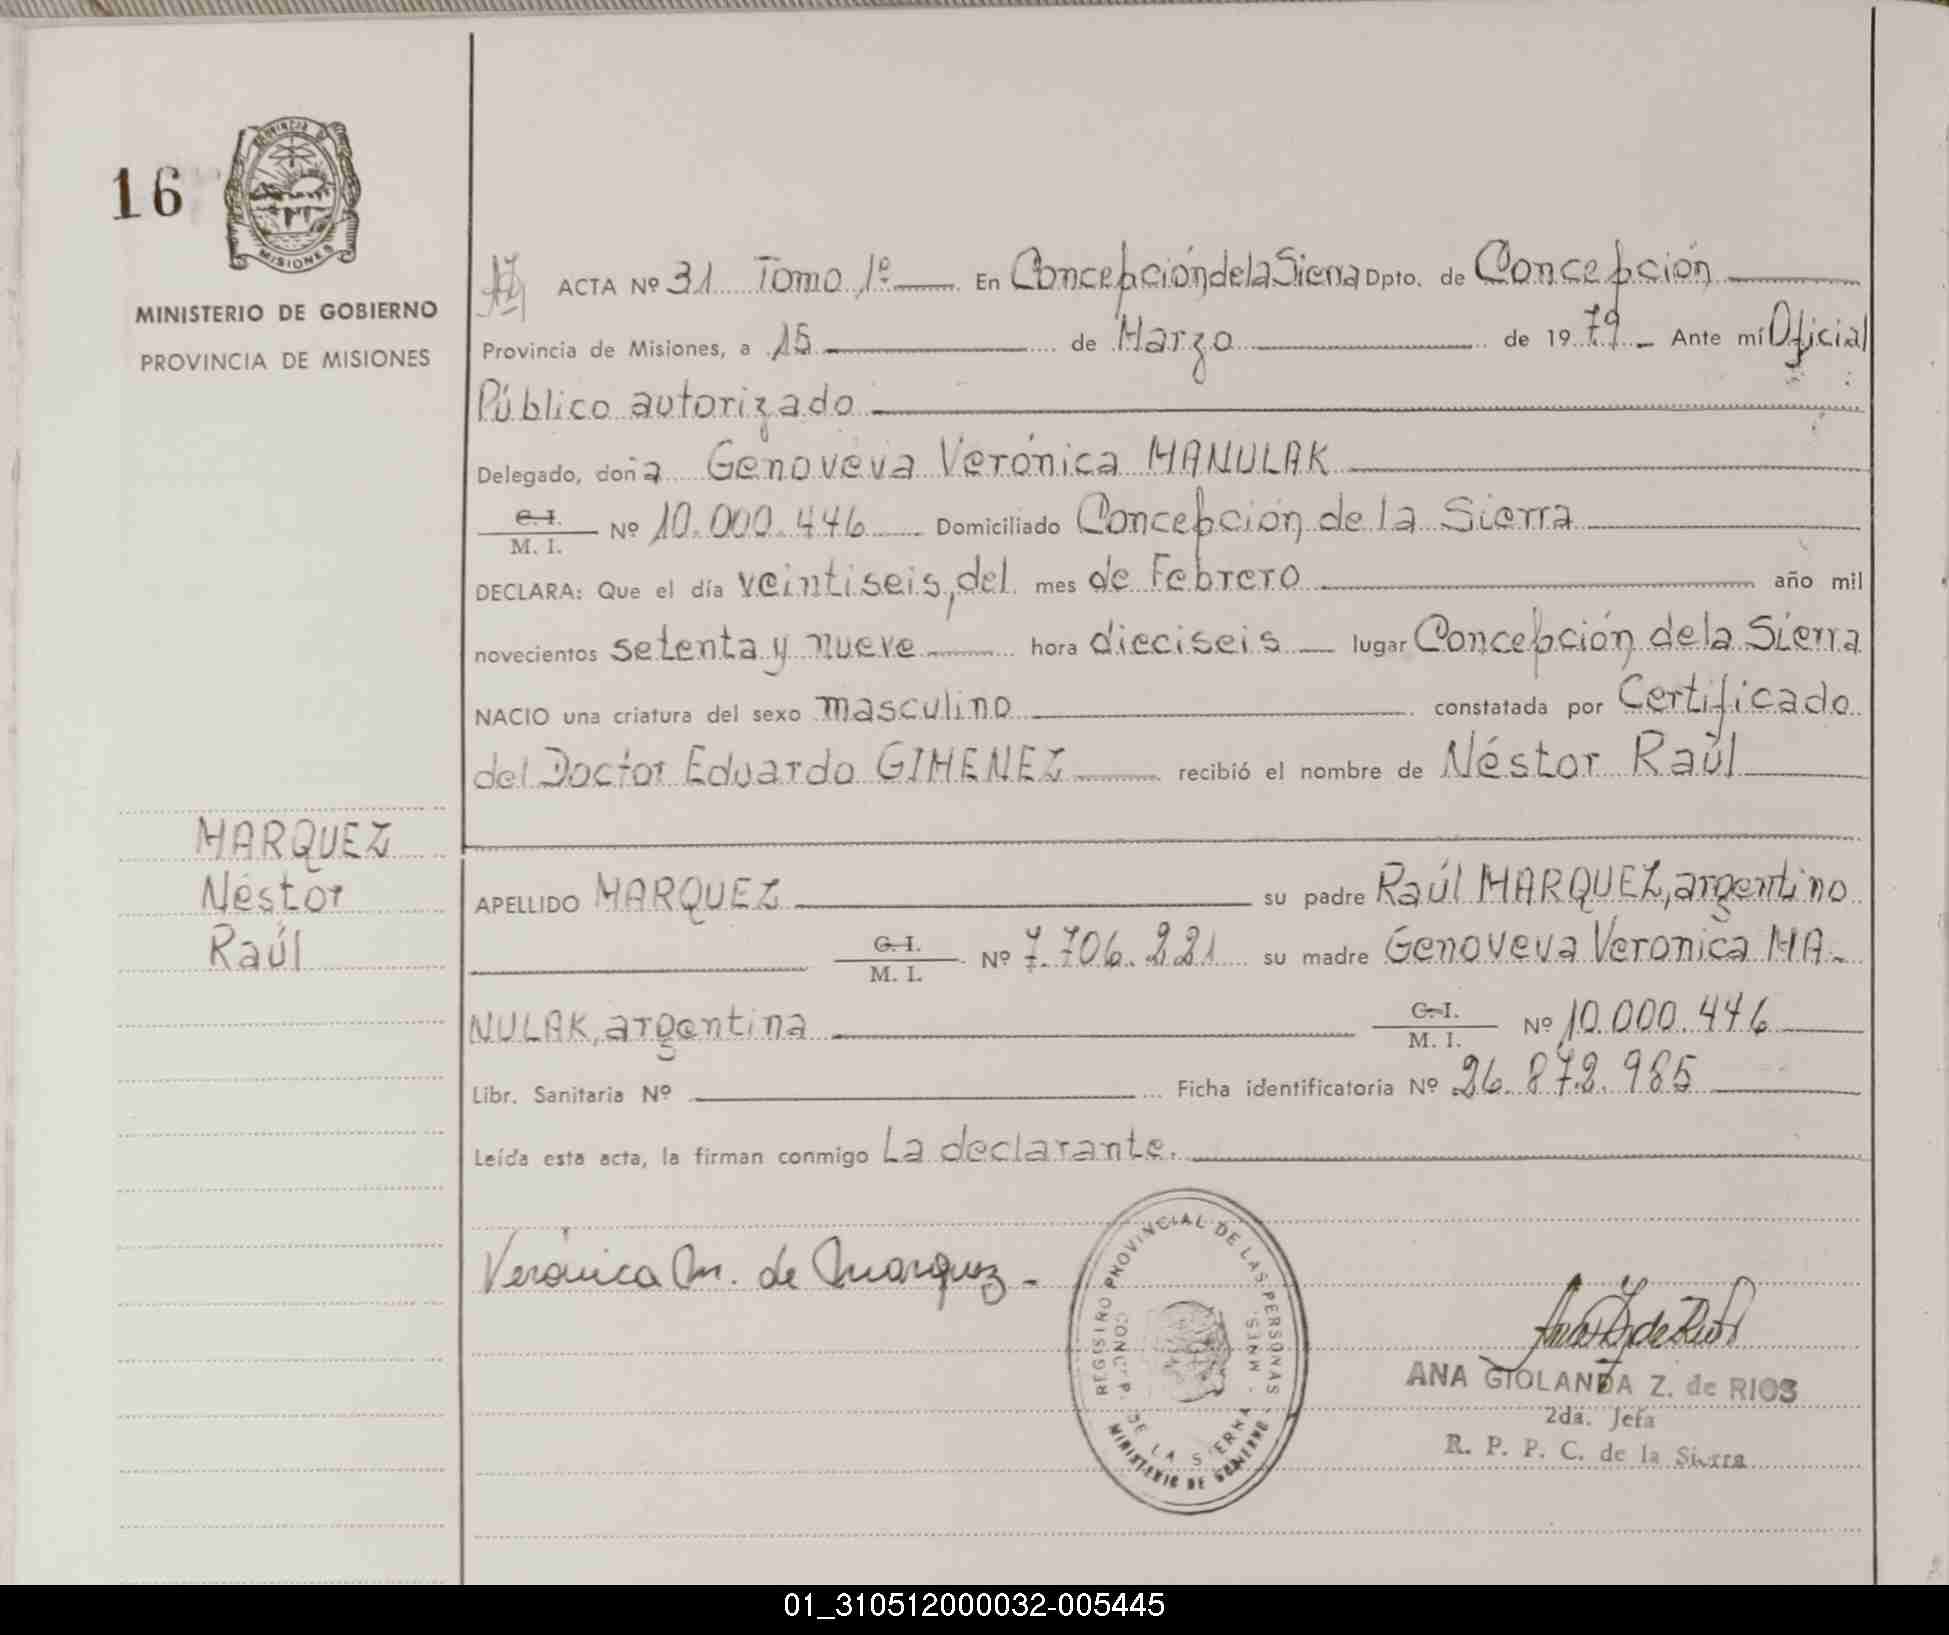 16
PROVINCIA DE
MISIONES
MINISTERIO DE GOBIERNO
PROVINCIA DE MISIONES
ACTA Nº 31 Tomo 1º En Concepción de la Sierra Dpto. de Concepción
Provincia de Misiones, a 15 de Marzo de 1979 Ante mí Oficial
Público autorizado
Delegado, doña Genoveva Verónica MANULAK
C. I.
M. I. Nº 10.000.446 Domiciliado Concepción de la Sierra
DECLARA: Que el día veintiseis, del mes de Febrero año mil
novecientos setenta y nueve hora dieciseis lugar Concepción de la Sierra
NACIO una criatura del sexo masculino constatada por Certificado
del Doctor Eduardo GIMENEZ recibió el nombre de Néstor Raúl
MARQUEZ
Néstor
Raúl
APELLIDO MARQUEZ su padre Raúl MARQUEZ, argentino
C. I.
M. I. Nº 7.706.221 su madre Genoveva Veronica MA-
NULAK, argentina C. I.
M. I. Nº 10.000.446
Libr. Sanitaria Nº Ficha identificatoria Nº 26.872.985
Leída esta acta, la firman conmigo La declarante.
Verónica M. de Marquez
REGISTRO PROVINCIAL DE LAS PERSONAS
CONCEP. DE LA SIERRA - MNES.
MINISTERIO DE GOBIERNO
ANA GIOLANDA Z. de RIOS
2da. Jefa
R. P. P. C. de la Sierra
01_310512000032-005445